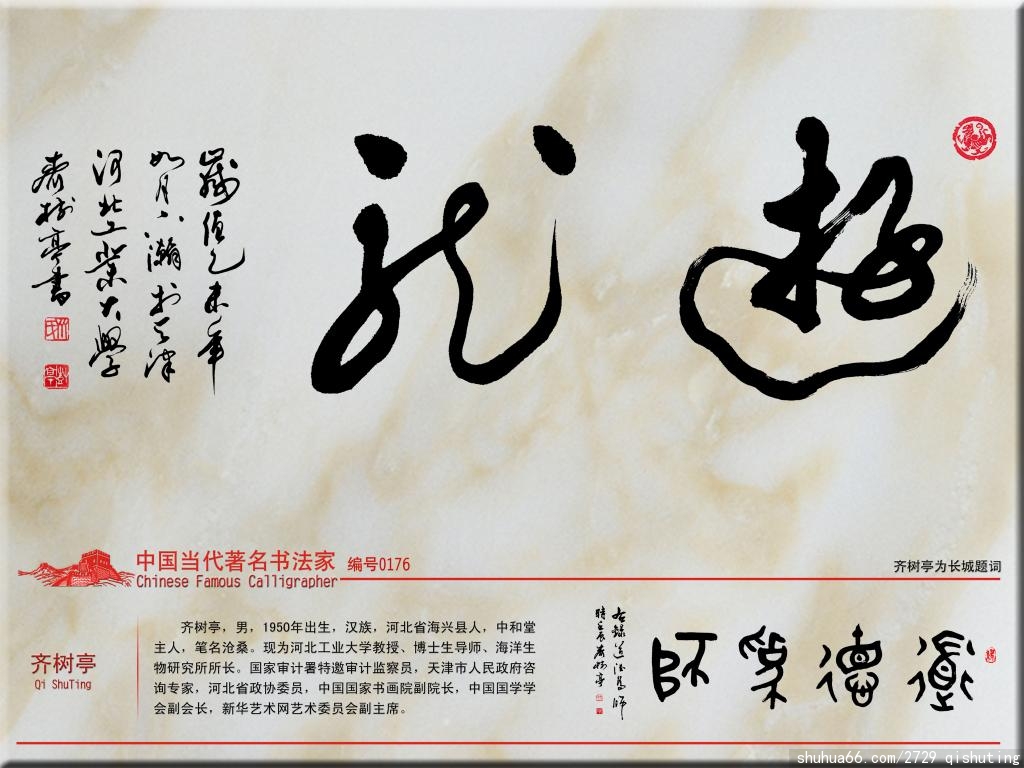 遊龙
歲值乙未年
如月下瀚於天津
河北工業大學
齊樹亭書
中国当代著名书法家 编号0176
Chinese Famous Calligrapher
齐树亭为长城题词
齐树亭
Qi ShuTing
齐树亭，男，1950年出生，汉族，河北省海兴县人，中和堂
主人，笔名沧桑。现为河北工业大学教授、博士生导师、海洋生
物研究所所长。国家审计署特邀审计监察员，天津市人民政府咨
询专家，河北省政协委员，中国国家书画院副院长，中国国学学
会副会长，新华艺术网艺术委员会副主席。
道德為師
右録道德為師
時壬辰齊樹亭
shuhua66.com/2729 qishuting